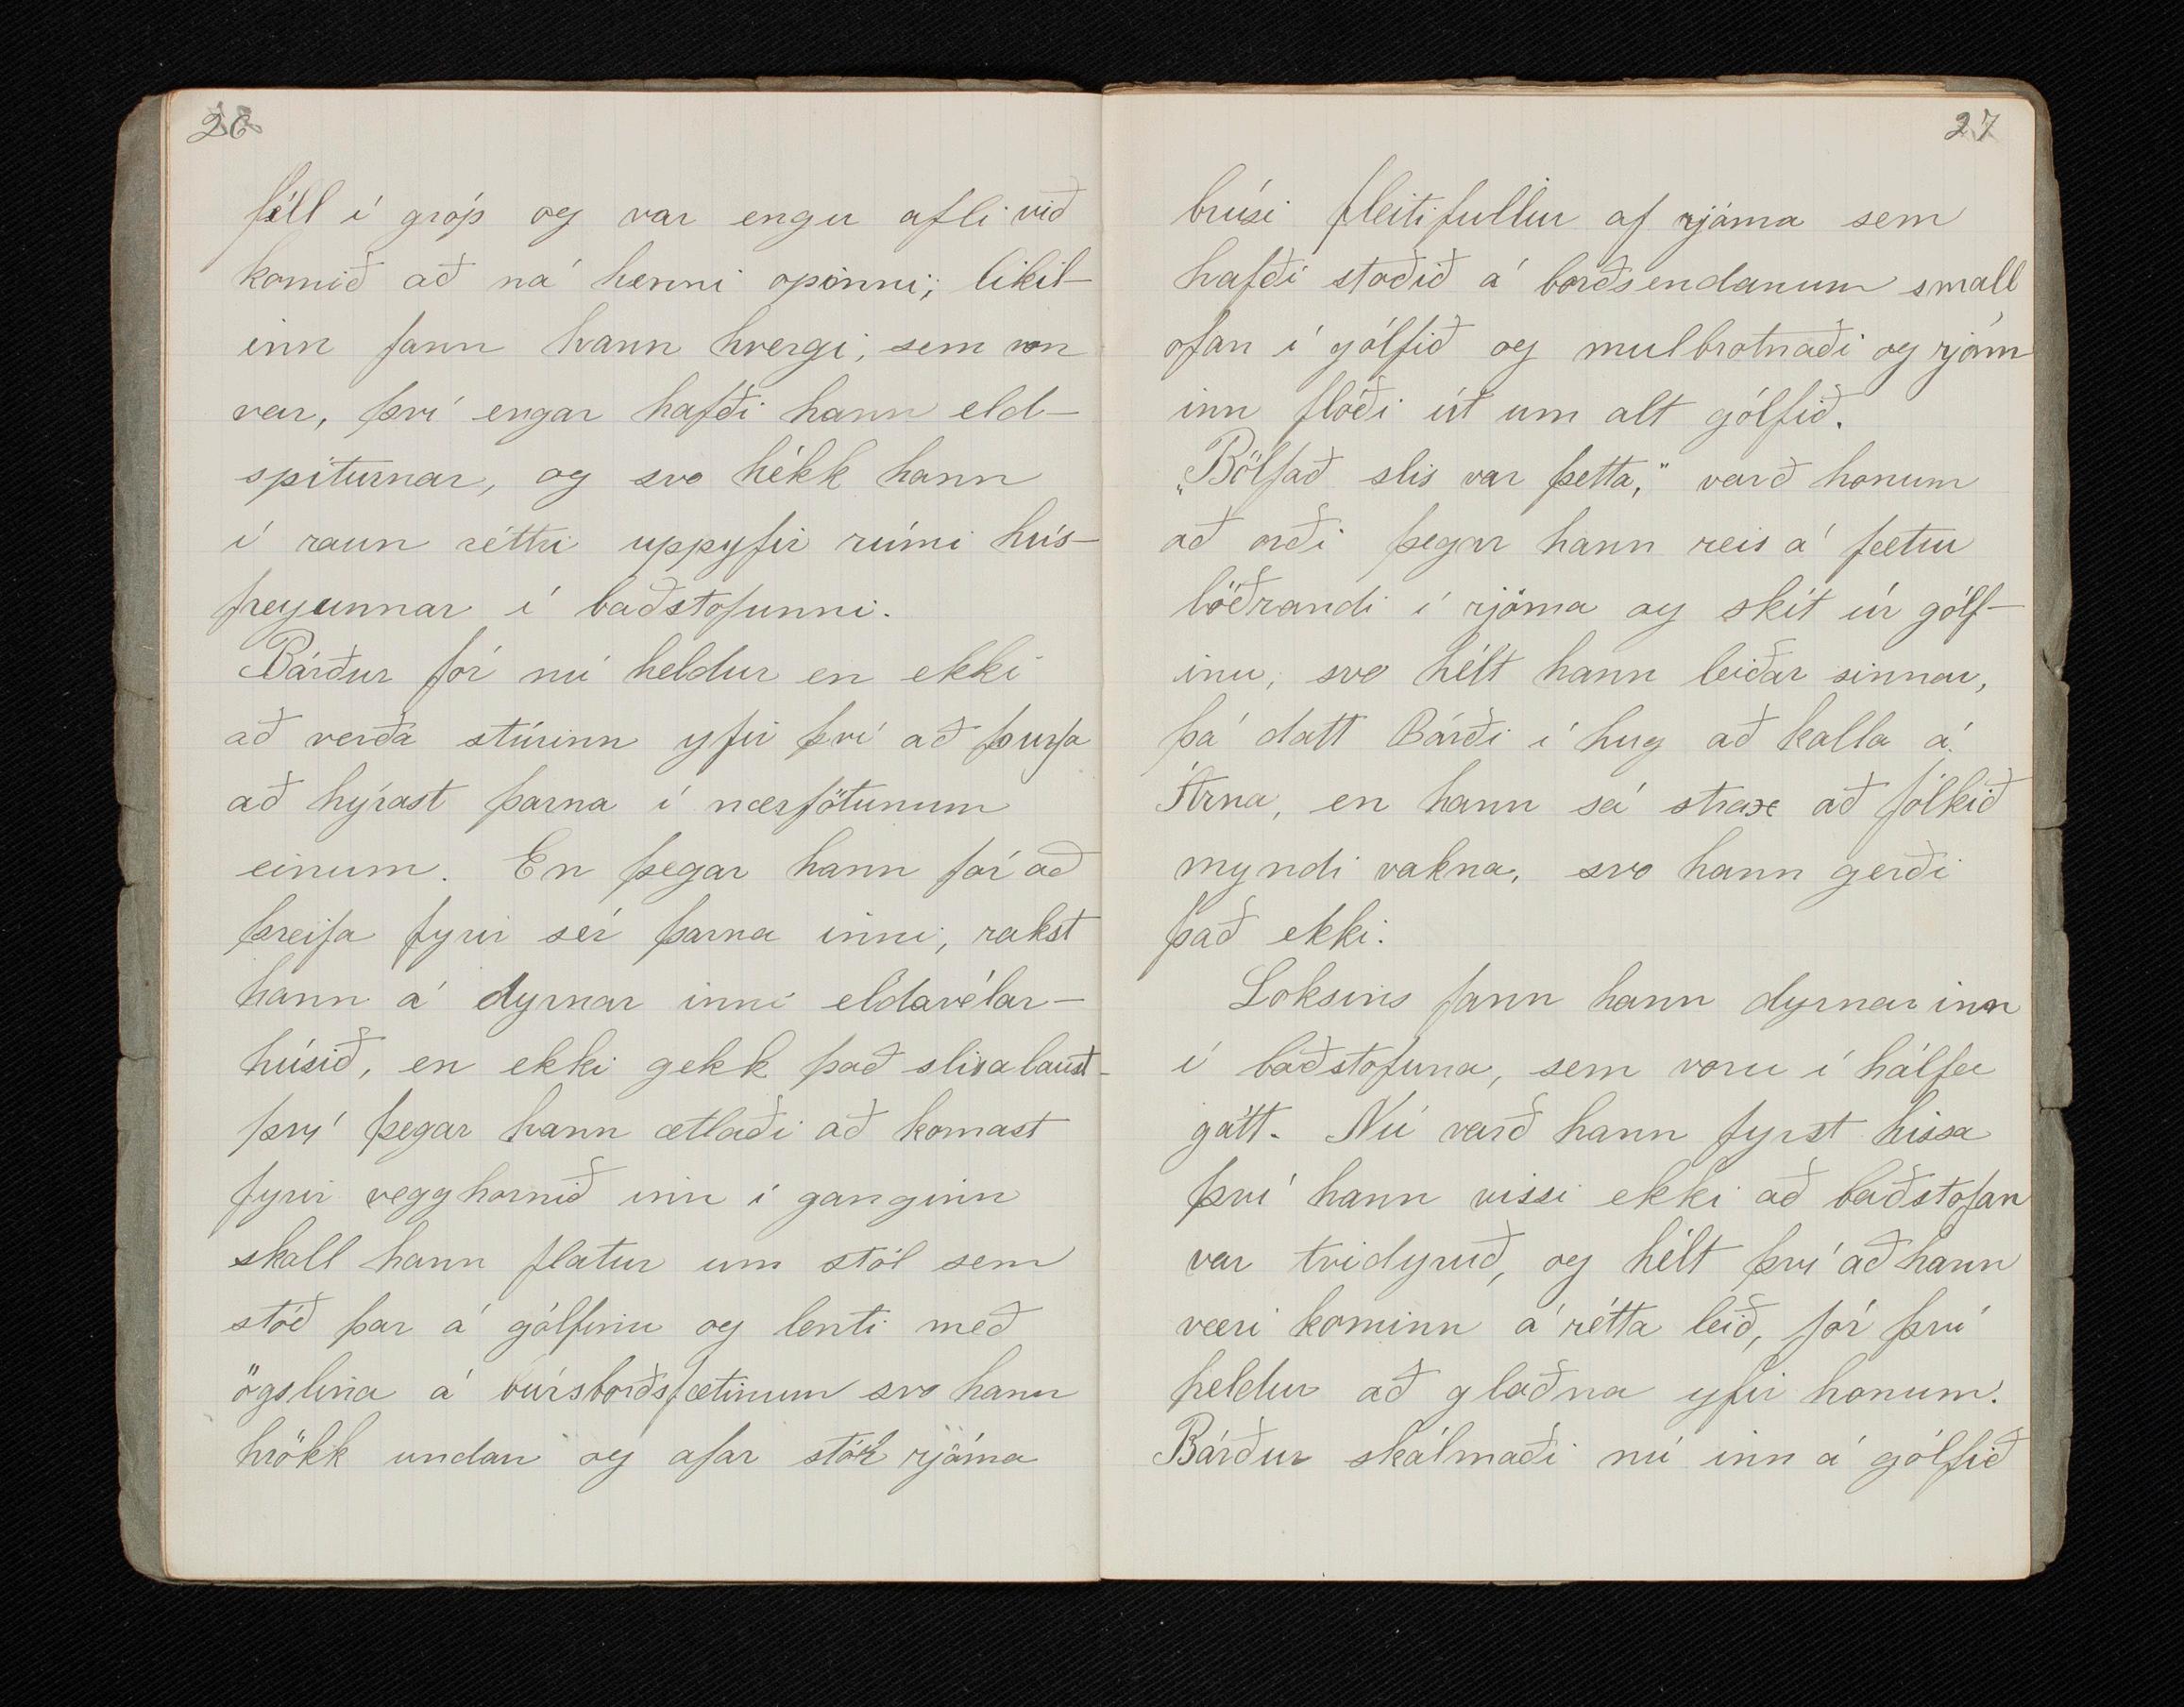 26
féll í gróp og var engu afli við
komið að ná henni opinni; likil-
inn fann hann hvergi, sem von
var, því engar hafði hann eld-
spíturnar, og svo hékk hann
í raun réttri uppyfir rúmi hús-
freyunnar í baðstofunni.
Bárður fór nú heldur en ekki
að verða stúrinn yfir því að þurfa
að hýrast þarna í nærfötunum
einum. En þegar hann fór að
þreifa fyrir sér þarna inni, rakst
hann á dyrnar inní eldavélar-
húsið, en ekki gekk það slisalaust-
því þegar hann ætlaði að komast
fyrir vegghornið inn í ganginn
skall hann flatur um stól sem
stóð þar á gólfinu og lenti með
ögslina á búrsborðsfætinum svo hann
hrökk undan og afar stór rjóma
27
brúsi fleitifullur af rjóma sem
hafði staðið á borðsendanum small
ofan í gólfið og mulbrotnaði og rjóm
inn flóði út um alt gólfið.
„Bölfað slis var þetta,“ varð honum
að orði þegar hann reis á fætur
löðrandi í rjóma og skít úr gólf-
inu, svo hélt hann leiðar sinnar,
þá datt Bárði í hug að kalla á
Árna, en hann sá strax að fólkið
myndi vakna, svo hann gerði
það ekki.
Loksins fann hann dyrnar inn
í baðstofuna, sem voru í hálfa
gátt. Nú varð hann fyrst hissa
því hann vissi ekki að baðstofan
var tvidyruð, og hélt því að hann
væri kominn á rétta leið, fór því
heldur að glaðna yfir honum.
Bárður skálmaði nú inn á gólfið